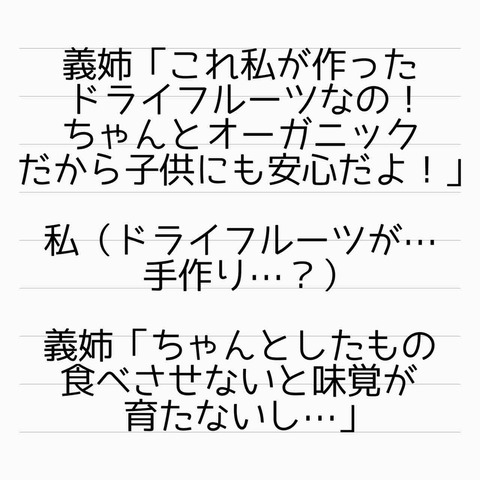 義姉「これ私が作った
ドライフルーツなの！
ちゃんとオーガニック
だから子供にも安心だよ！」
私（ドライフルーツが…
手作り…？）
義姉「ちゃんとしたもの
食べさせないと味覚が
育たないし…」